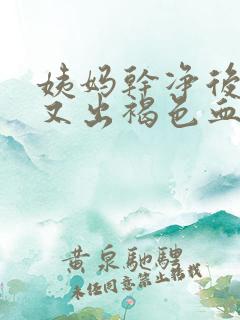 姨妈幹净後
又出褐色血
黄泉馳騁
未经同意禁止转载